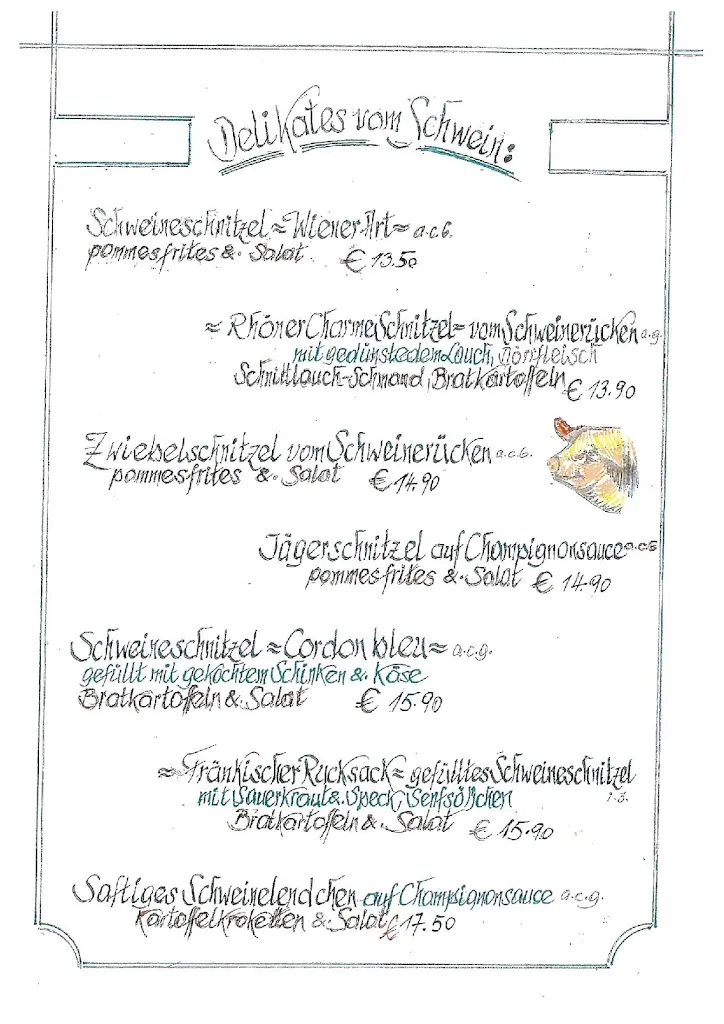 Delikates vom Schwein:
Schweineschnitzel ≈ Wiener Art ≈ a.c.G.
pommesfrites & Salat € 13.50
≈ Rhöner Charme Schnitzel ≈ vom Schweinerücken a.g.
mit gedünstedem Lauch, Dörrfleisch
Schnittlauch-Schmand, Bratkartoffeln € 13.90
Zwiebelschnitzel vom Schweinerücken a.c.G.
pommesfrites & Salat € 14.90
Jägerschnitzel auf Champignonsauce a.c.G
pommesfrites & Salat € 14.90
Schweineschnitzel ≈ Cordon bleu ≈ a.c.g.
gefüllt mit gekochtem Schinken & Käse
Bratkartoffeln & Salat € 15.90
≈ Fränkischer Rucksack ≈ gefülltes Schweineschnitzel
mit Sauerkraut & Speck, Senfsößchen
Bratkartoffeln & Salat € 15.90
Saftiges Schweinelendchen auf Champignonsauce a.c.g.
Kartoffelkroketten & Salat € 17.50